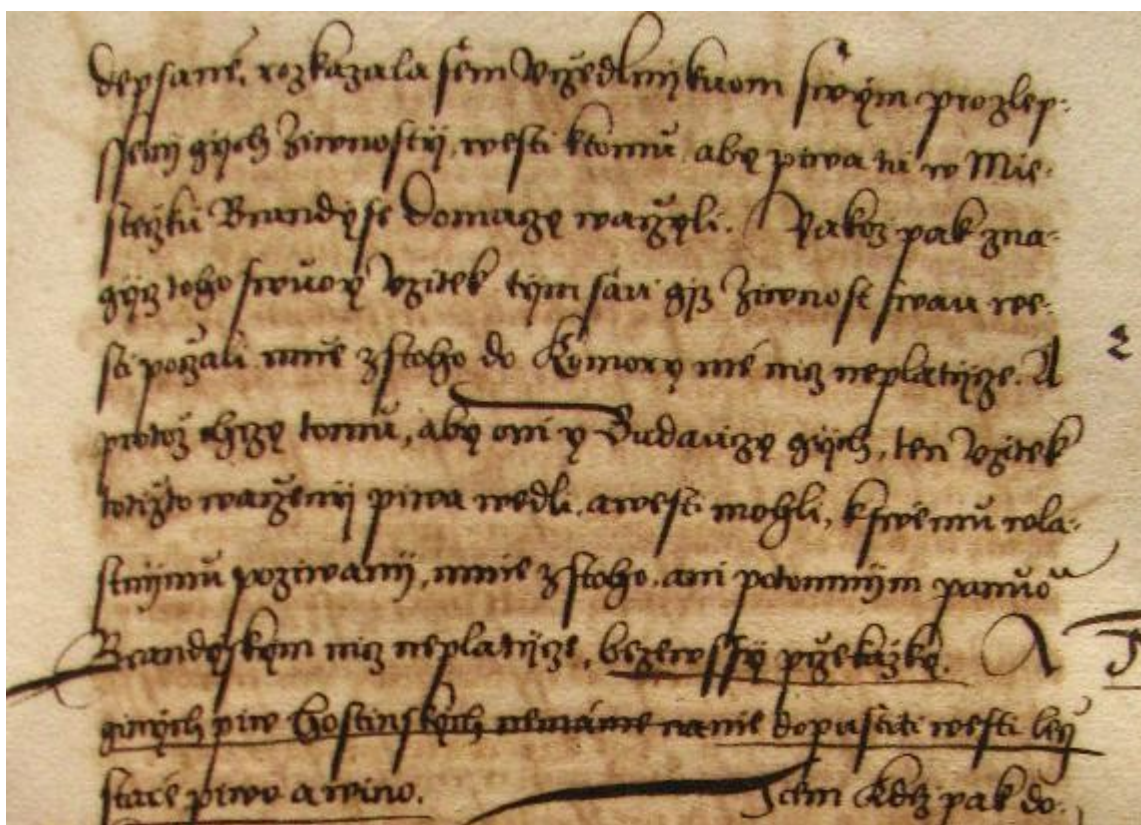 depsané, rozkázala sem Vržedlnijkuom swým prozlep:
sseny gijch žiwnostij, westi ktomu, aby piwa tu w Mie:
stezku Brandyse Domazy warzyli. Yakoz pak zna:
gijz toho swuoy Vzitek tijm sau gijz žiwnost swau we:
sti pozali mnie zstoho do Komory mé niz neplatijze. A
protoz chzy tomu, aby oni y Budauzy gijch, ten Vzitek
totizto warzenij piwa wedli, awesti mohli, kswému wla:
stnijmu poziwanij, mnie zstoho, ani potomnijm panuo
Brandyskym niz neplatijze, bezewssy przekazky. A
ginych piw hostinskych nemáme nanie dopustiti westi lec
staré piwo awino. Item Kdez pak do: